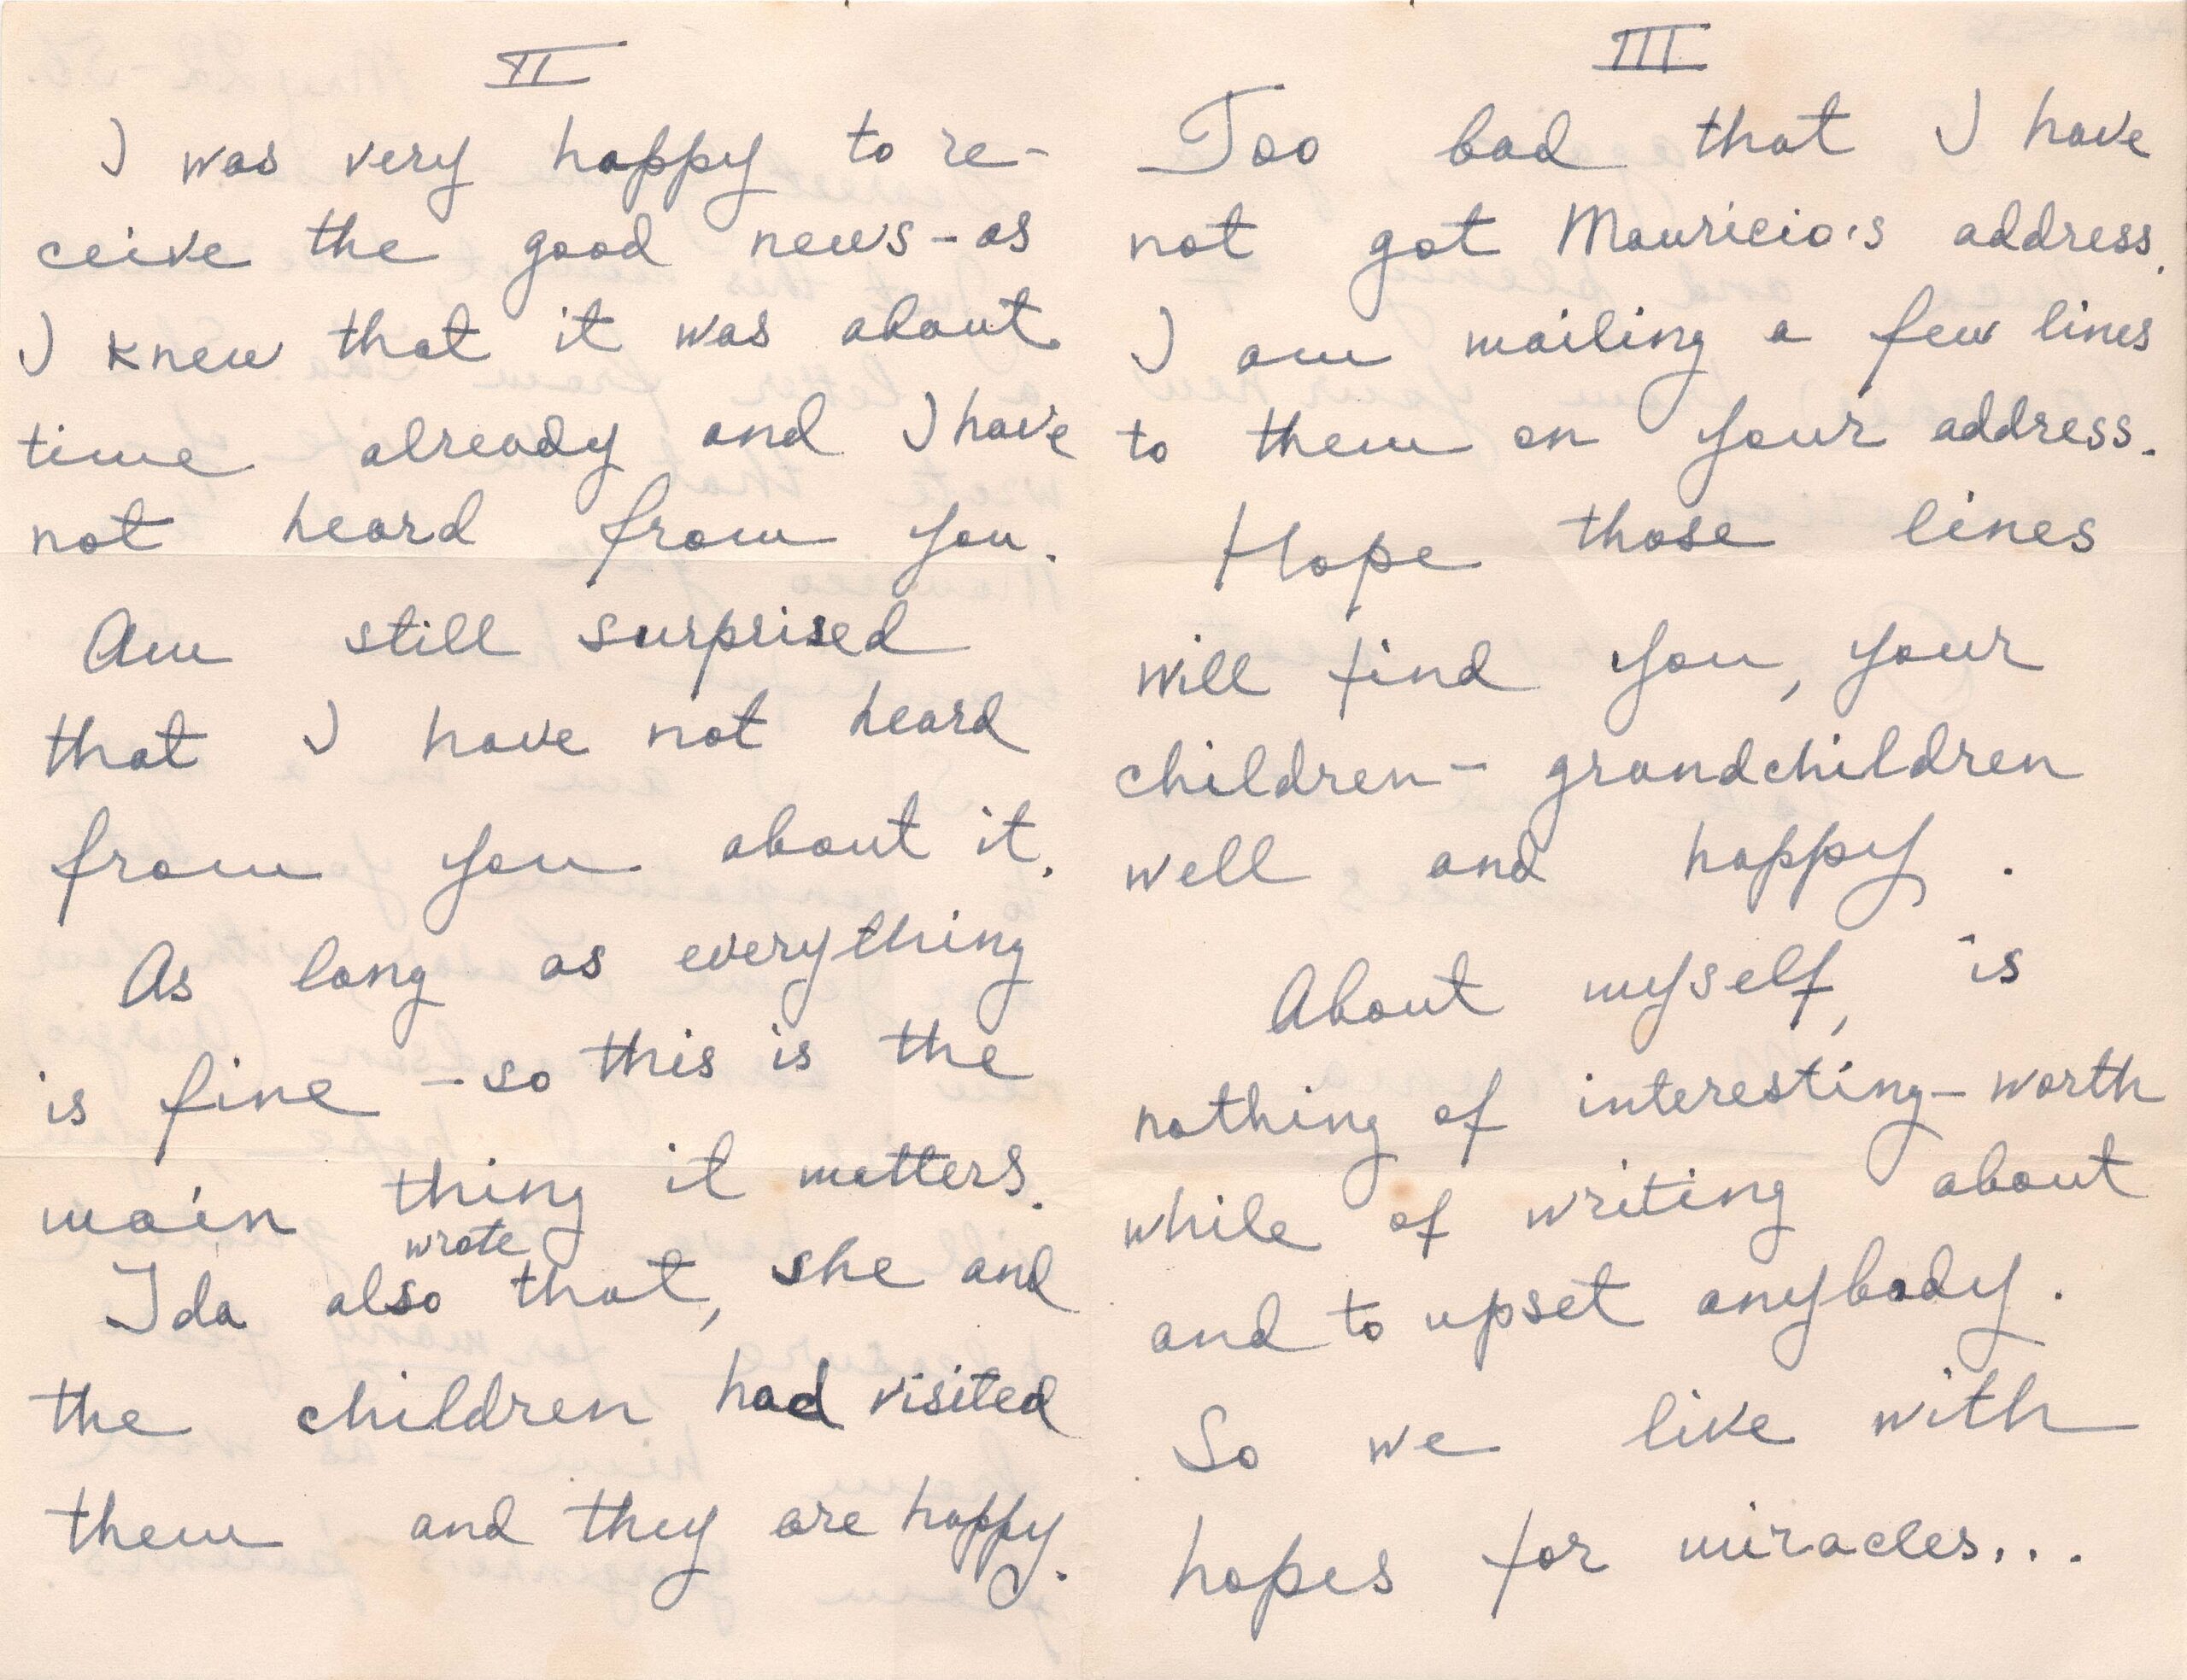 II
I was very happy to re-
ceive the good news - as
I knew that it was about
time already and I have
not heard from you.
Am still surprised
that I have not heard
from you about it.
As long as everything
is fine - so this is the
main thing it matters.
wrote
Ida also that, she and
the children had visited
them and they are happy.
III
Too bad that I have
not got Mauricio's address.
I am mailing a few lines
to them on your address.
Hope those lines
will find you, your
children - grandchildren
well and happy.
About myself, is
nothing of interesting - worth
while of writing about
and to upset anybody.
So we live with
hopes for miracles...